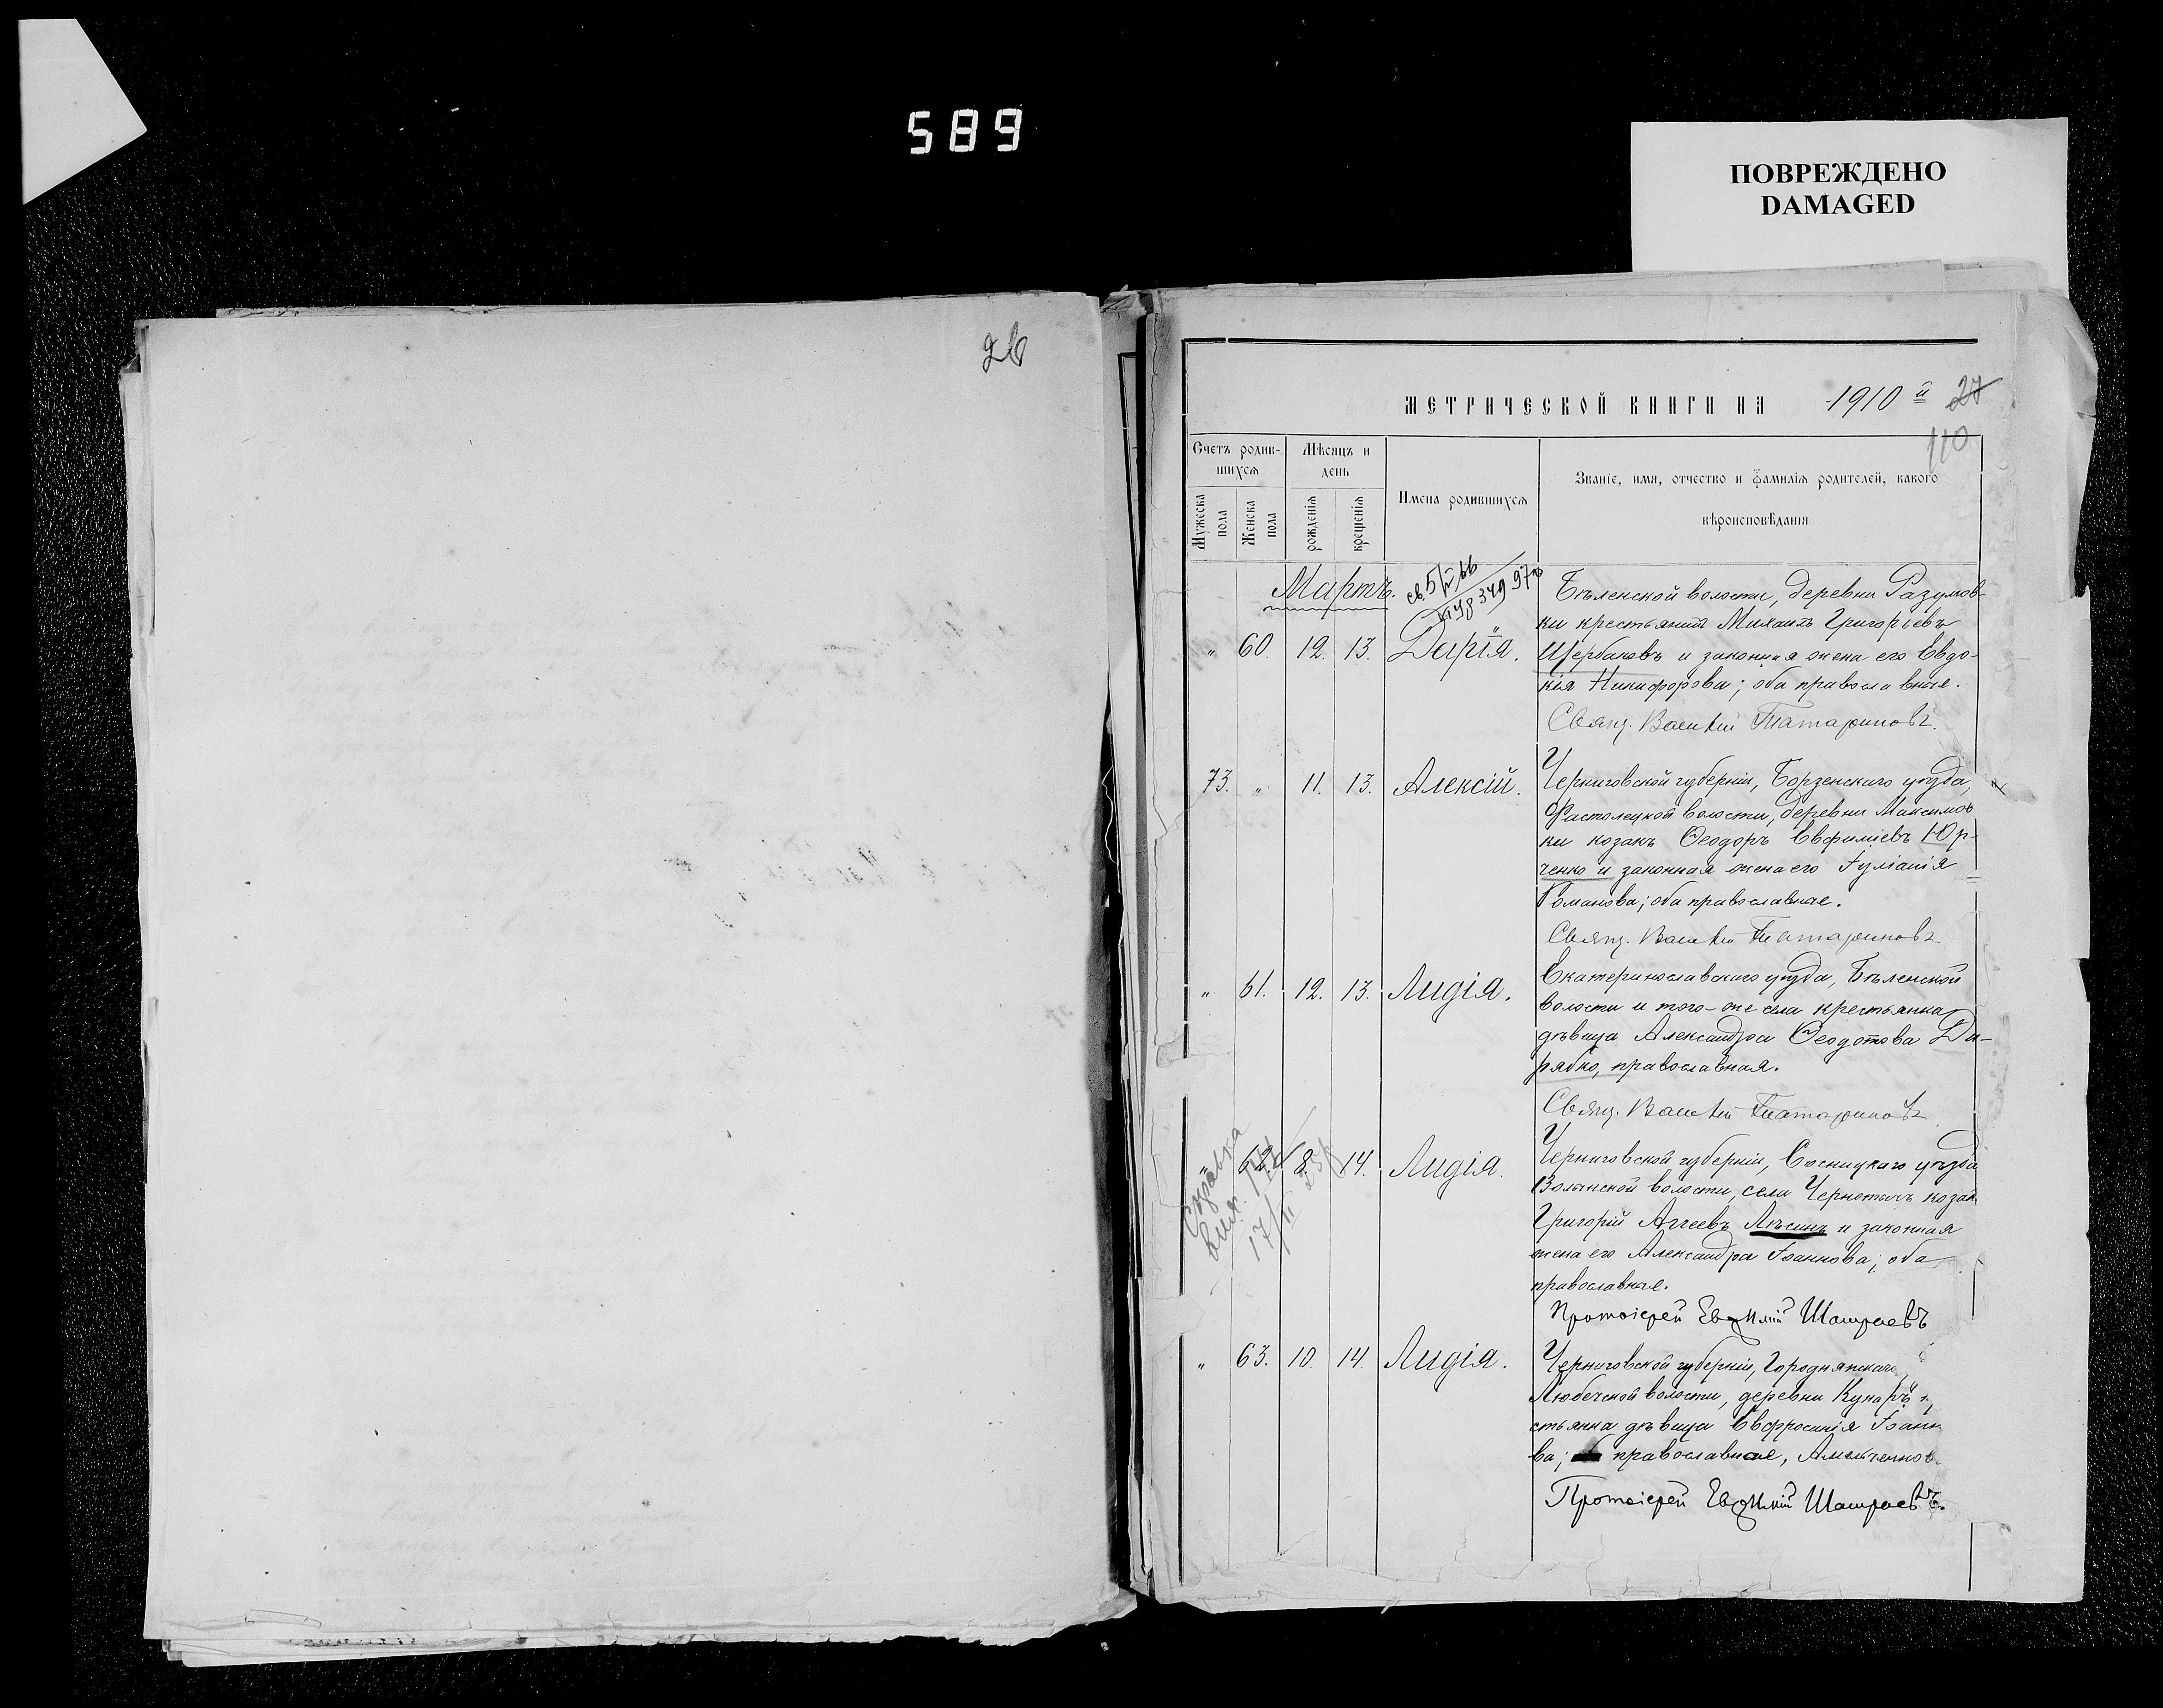 589
ПОВРЕЖДЕНО
DAMAGED
26
МЕТРИЧЕСКОЙ КНИГИ НА 1910й 27
110
Счетъ родив-
шихся
Мѣсяцъ и
день
Мужеска
пола
Женска
пола
рожденія
крещенія
Имена родившихся
Званіе, имя, отчество и фамилія родителей, какого
вѣроисповѣданія
Мартъ.
„ 60. 12. 13. Дарія.
Бѣленской волости, деревни Разумов-
ки крестьянинъ Михаилъ Григорьевъ
Щербаковъ и законная жена его Евдо-
кія Никифорова; оба православные.
Свящ. Василій Татариновъ.
73. „ 11. 13. Алексій.
Черниговской губерніи, Борзенскаго уѣзда,
волости, деревни Максимов
ки козакъ Ѳеодоръ Евфиміевъ Юр-
ченко и законная жена его Іуліанія
Романова; оба православные.
Свящ. Василій Татариновъ.
„ 61. 12. 13. Лидія.
Екатеринославскаго уѣзда, Бѣленской
волости и того-же села крестьянка
дѣвица Александра Ѳеодотова Ди-
рябко, православная.
Свящ. Василій Татариновъ
Справка
17/II
„ 62. 8. 14. Лидія.
Черниговской губерніи, Сосницкаго уѣзда
Волынской волости, села Чернотичъ козак
Григорій Аггеевъ Лѣсинъ и законная
жена его Александра Іоаннова; оба
православные.
Протоіерей Евѳимій
„ 63. 10. 14. Лидія.
Черниговской губерніи, Городнянскаго
Любечской волости, деревни
стьянка дѣвица Евфросинія Іоанн
ва; православная,
Протоіерей Евѳимій